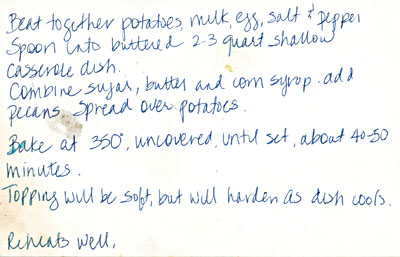 Beat together potatoes, milk, egg, salt & pepper
Spoon into buttered 2-3 quart shallow
casserole dish.
Combine sugar, butter and corn syrup. add
pecans. Spread over potatoes.
Bake at 350°, uncovered, until set, about 40-50
minutes.
Topping will be soft, but will harden as dish cools.
Reheats well.